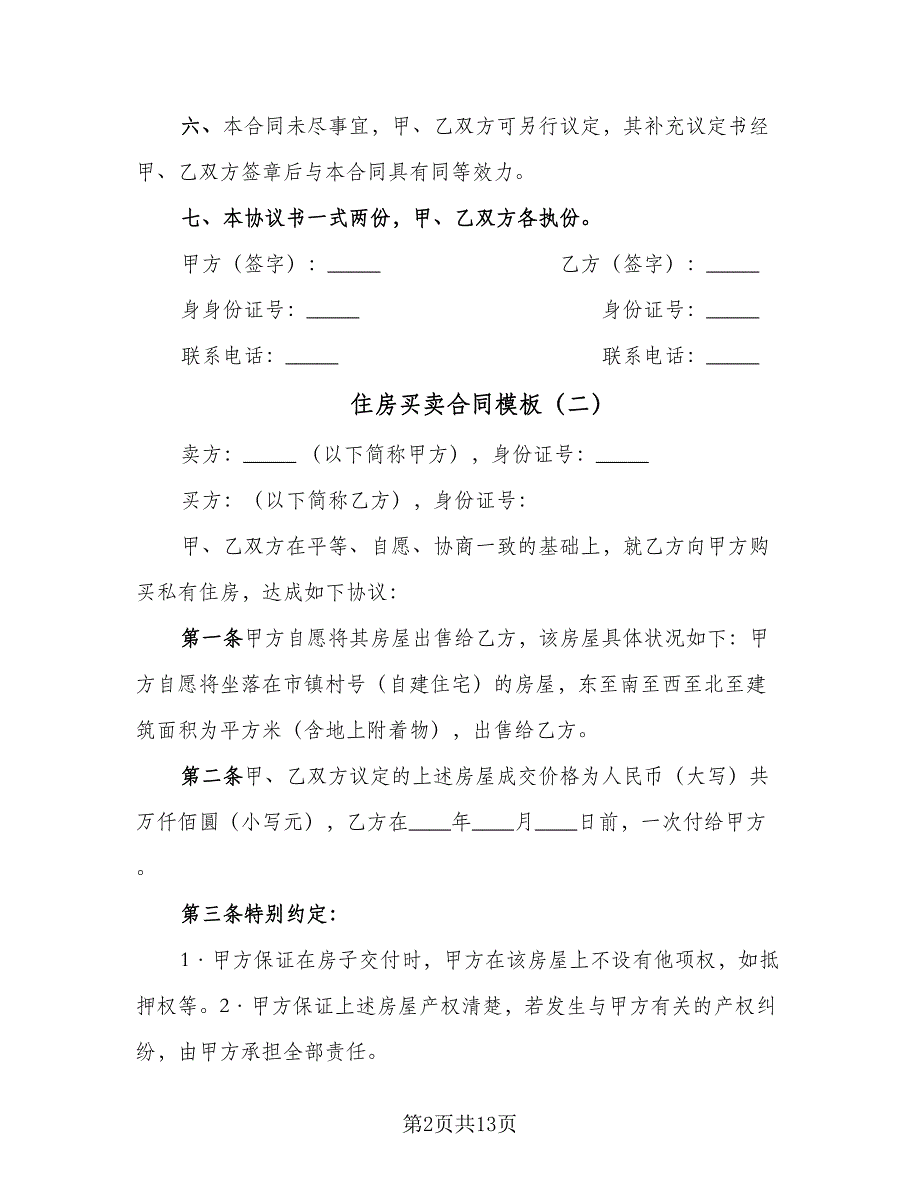 六、本合同未尽事宜，甲、乙双方可另行议定，其补充议定书经
甲、乙双方签章后与本合同具有同等效力。
七、本协议书一式两份，甲、乙双方各执份。
甲方（签字）：_____ 乙方（签字）：_____
身身份证号：_____ 身份证号：_____
联系电话：_____ 联系电话：_____
住房买卖合同模板（二）
卖方：_____（以下简称甲方），身份证号：_____
买方：（以下简称乙方），身份证号：
甲、乙双方在平等、自愿、协商一致的基础上，就乙方向甲方购
买私有住房，达成如下协议：
第一条甲方自愿将其房屋出售给乙方，该房屋具体状况如下：甲
方自愿将坐落在市镇村号（自建住宅）的房屋，东至南至西至北至建
筑面积为平方米（含地上附着物），出售给乙方。
第二条甲、乙双方议定的上述房屋成交价格为人民币（大写）共
万仟佰圆（小写元），乙方在____年____月____日前，一次付给甲方
。
第三条特别约定：
1·甲方保证在房子交付时，甲方在该房屋上不设有他项权，如抵
押权等。2·甲方保证上述房屋产权清楚，若发生与甲方有关的产权纠
纷，由甲方承担全部责任。
第2页共13页